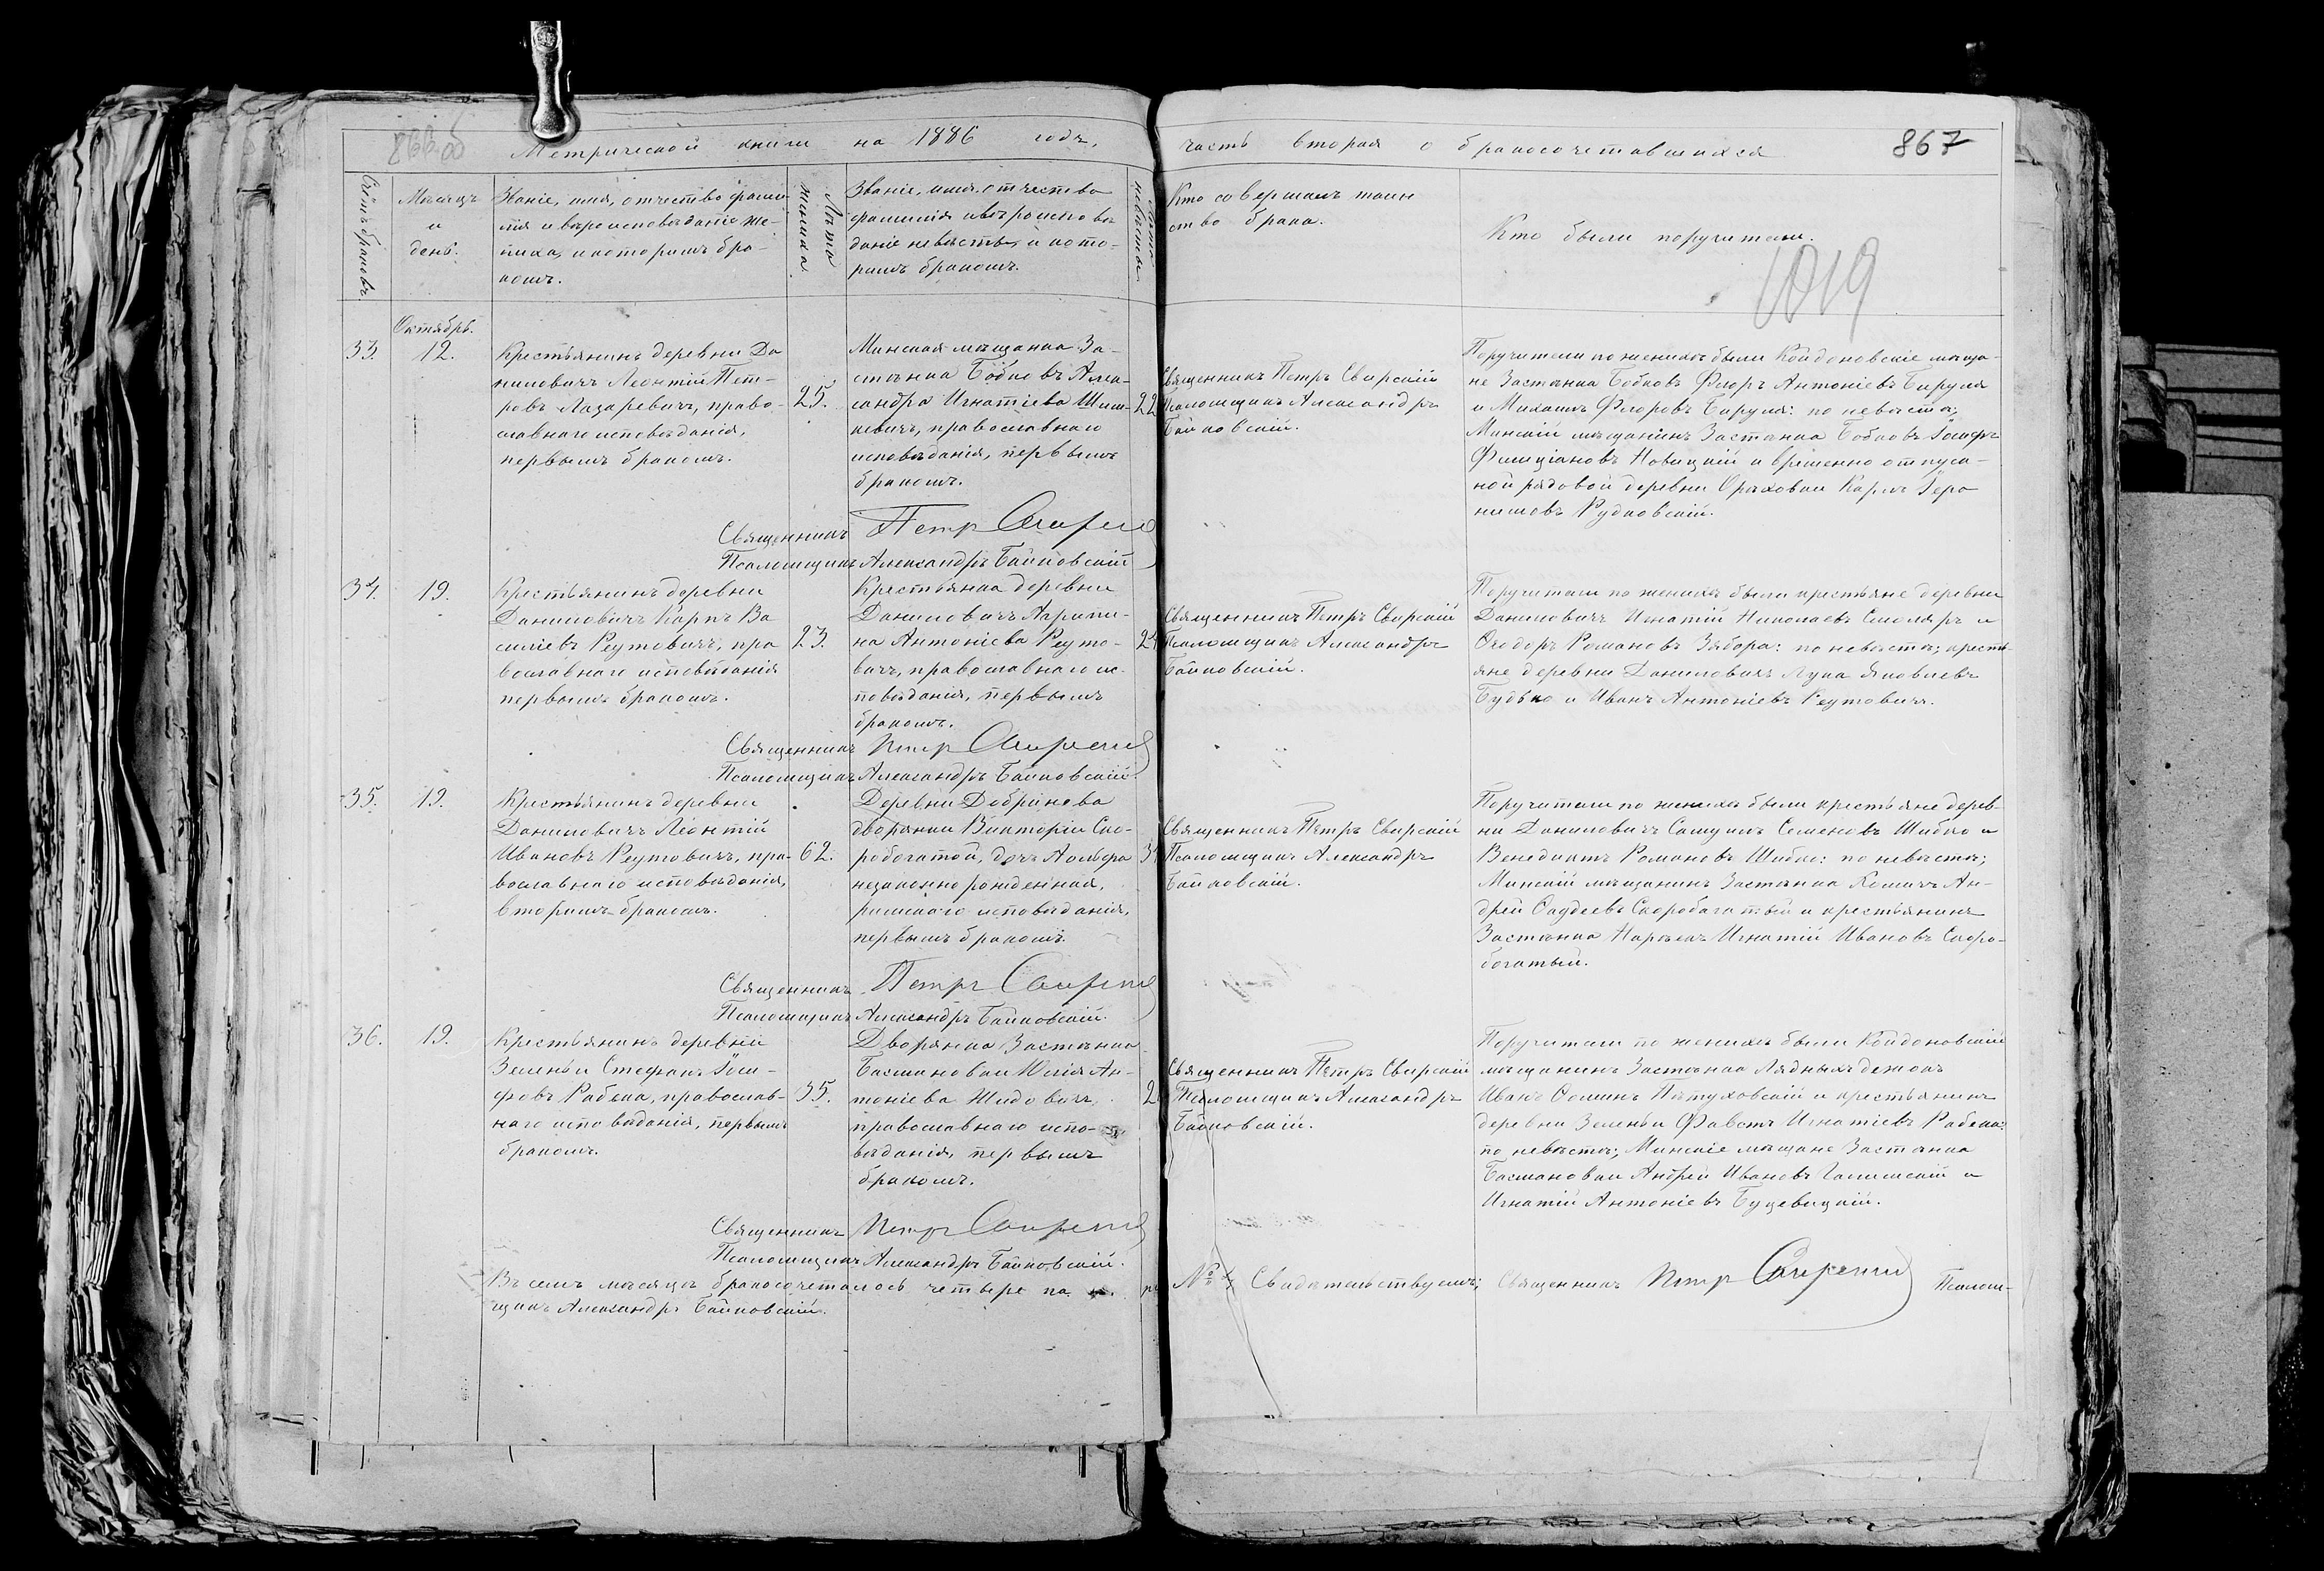 866 об
Метрической книги на 1886 годъ,
часть вторая о бракосочетавшихся
867
Счетъ браковъ.
Мѣсяцъ
и
день.
Званіе, имя, отчество фами
лія и вѣроисповѣданіе же-
ниха, и которымъ бра-
комъ.
Лѣта
жениха.
Званіе, имя, отчество
фамилія и вѣроисповѣ
даніе невѣсты, и кото-
рымъ бракомъ.
Лѣта
невѣсты
Кто совершалъ таин
ство брака.
Кто были поручители.
1019
Октябрь.
33.
12.
Крестьянинъ деревни Да
ниловичъ Леонтій Пет-
ровъ Лазаревичъ, право-
славнаго исповѣданія,
первымъ бракомъ.
25.
Минская мѣщанка За-
стѣнка Бобковъ Алек-
сандра Игнатіева Шиш-
кевичъ, православнаго
исповѣданія, первымъ
бракомъ.
22
Священникъ Петръ Свирскій
Псаломщикъ Александръ
Байковскій.
Поручители по женихѣ были Койдановскіе мѣща-
не Застѣнка Бобковъ Флоръ Антоніевъ Бируля
и Михаилъ Флоровъ Бируля: по невѣстѣ;
Минскій мѣщанинъ Застѣнка Бобковъ Іосифъ
Фелиціановъ Новицкій и временно отпуск-
ной рядовой деревни Ореховки Карлъ Іеро
нимовъ Рудковскій.
Священникъ Петр Свирскій
Псаломщикъ Александръ Байковскій
34.
19.
Крестьянинъ деревни
Даниловичъ Карпъ Ва
силіевъ Реутовичъ, пра
вославнаго исповѣданія
первымъ бракомъ.
23.
Крестьянка деревни
Даниловичъ Агрипи-
на Антоніева Реуто-
вичъ, православнаго ис-
повѣданія, первымъ
бракомъ.
Священникъ Петръ Свирскій
Псаломщикъ Александръ
Байковскій.
Поручители по женихѣ были крестьяне деревни
Даниловичъ Игнатій Николаевъ Смоляръ и
Ѳеодоръ Романовъ Зябора: по невѣстѣ; кресть-
яне деревни Даниловичъ Лука Яковлевъ
Будько и Иванъ Антоніевъ Реутовичъ.
Священникъ Петр Свирскій
Псаломщикъ Александръ Байковскій.
35.
19.
Крестьянинъ деревни
Даниловичъ Леонтій
Ивановъ Реутовичъ, пра-
вославнаго исповѣданія,
вторымъ бракомъ.
62.
Деревни Добринева
дворянки Викторіи Ско-
робогатой, дочь Адольфа
незаконнорожденная,
римскаго исповѣданія,
первымъ бракомъ.
Священникъ Петръ Свирскій
Псаломщикъ Александръ
Байковскій.
Поручители по женихѣ были крестьяне дерев-
ни Даниловичъ Самуилъ Семеновъ Шибко и
Венедиктъ Романовъ Шибко: по невѣстѣ;
Минскій мѣщанинъ Застѣнка Комичъ Ан-
дрей Ѳаддеевъ Скоробогатый и крестьянинъ
Застѣнка Игнатій Ивановъ Скоро-
богатый.
Священникъ Петръ Свирскій
Псаломщикъ Александръ Байковскій.
36.
19.
Крестьянинъ деревни
Зеленьи Стефанъ Іоси-
фовъ Рабека, православ-
наго исповѣданія, первымъ
бракомъ.
35.
Дворянка Застѣнка
Басмановки Юлія Ан-
тоніева Жидовичъ,
православнаго испо-
вѣданія, первымъ
бракомъ.
Священникъ Петръ Свирскій
Псаломщикъ Александръ
Байковскій.
Поручители по женихѣ были Койдановскій
мѣщанинъ Застѣнка
Иванъ Ѳоминъ Пѣтуховскій и крестьянинъ
деревни Зеленьи Фавстъ Игнатіевъ Рабека:
по невѣстѣ; Минскіе мѣщане Застѣнка
Басмановки Андрей Ивановъ Галимскій и
Игнатій Антоніевъ Буцевицкій.
Священникъ Петр Свирскій
Псаломщикъ Александръ Байковскій.
Въ семъ мѣсяцѣ бракосочеталось четыре па
№ 4 Свидѣтельствуемъ; Священникъ Петр Свирскій Псалом-
щикъ Александръ Байковскій.